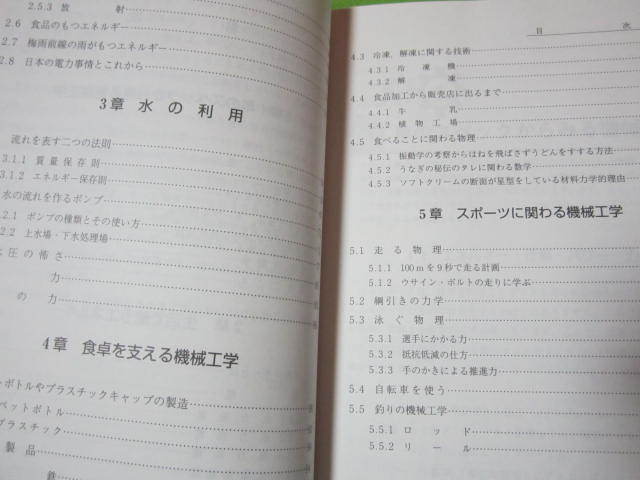 2.5.3 放射
2.6 食品のもつエネルギー
2.7 梅雨前線の雨がもつエネルギー
2.8 日本の電力事情とこれから
3章 水の利用
流れを表す二つの法則
3.1.1 質量保存則
3.1.2 エネルギー保存則
水の流れを作るポンプ
2.1 ポンプの種類とその使い方
2.2 上水場・下水処理場
圧の怖さ
力
の力
4章 食卓を支える機械工学
ボトルやプラスチックキャップの製造
ペットボトル
プラスチック
製品
鉄
目次
4.3 冷凍、解凍に関する技術
4.3.1 冷凍機
4.3.2 解凍
4.4 食品加工から販売店に出るまで
4.4.1 牛乳
4.4.2 植物工場
4.5 食べることに関わる物理
4.5.1 振動学の考察からはねを飛ばさずうどんをすする方法
4.5.2 うなぎの秘伝のタレに関わる数学
4.5.3 ソフトクリームの断面が星型をしている材料力学的理由
5章 スポーツに関わる機械工学
5.1 走る物理
5.1.1 100mを9秒で走る計画
5.1.2 ウサイン・ボルトの走りに学ぶ
5.2 綱引きの力学
5.3 泳ぐ物理
5.3.1 選手にかかる力
5.3.2 抵抗低減の仕方
5.3.3 手のかきによる推進力
5.4 自転車を使う
5.5 釣りの機械工学
5.5.1 ロッド
5.5.2 リール